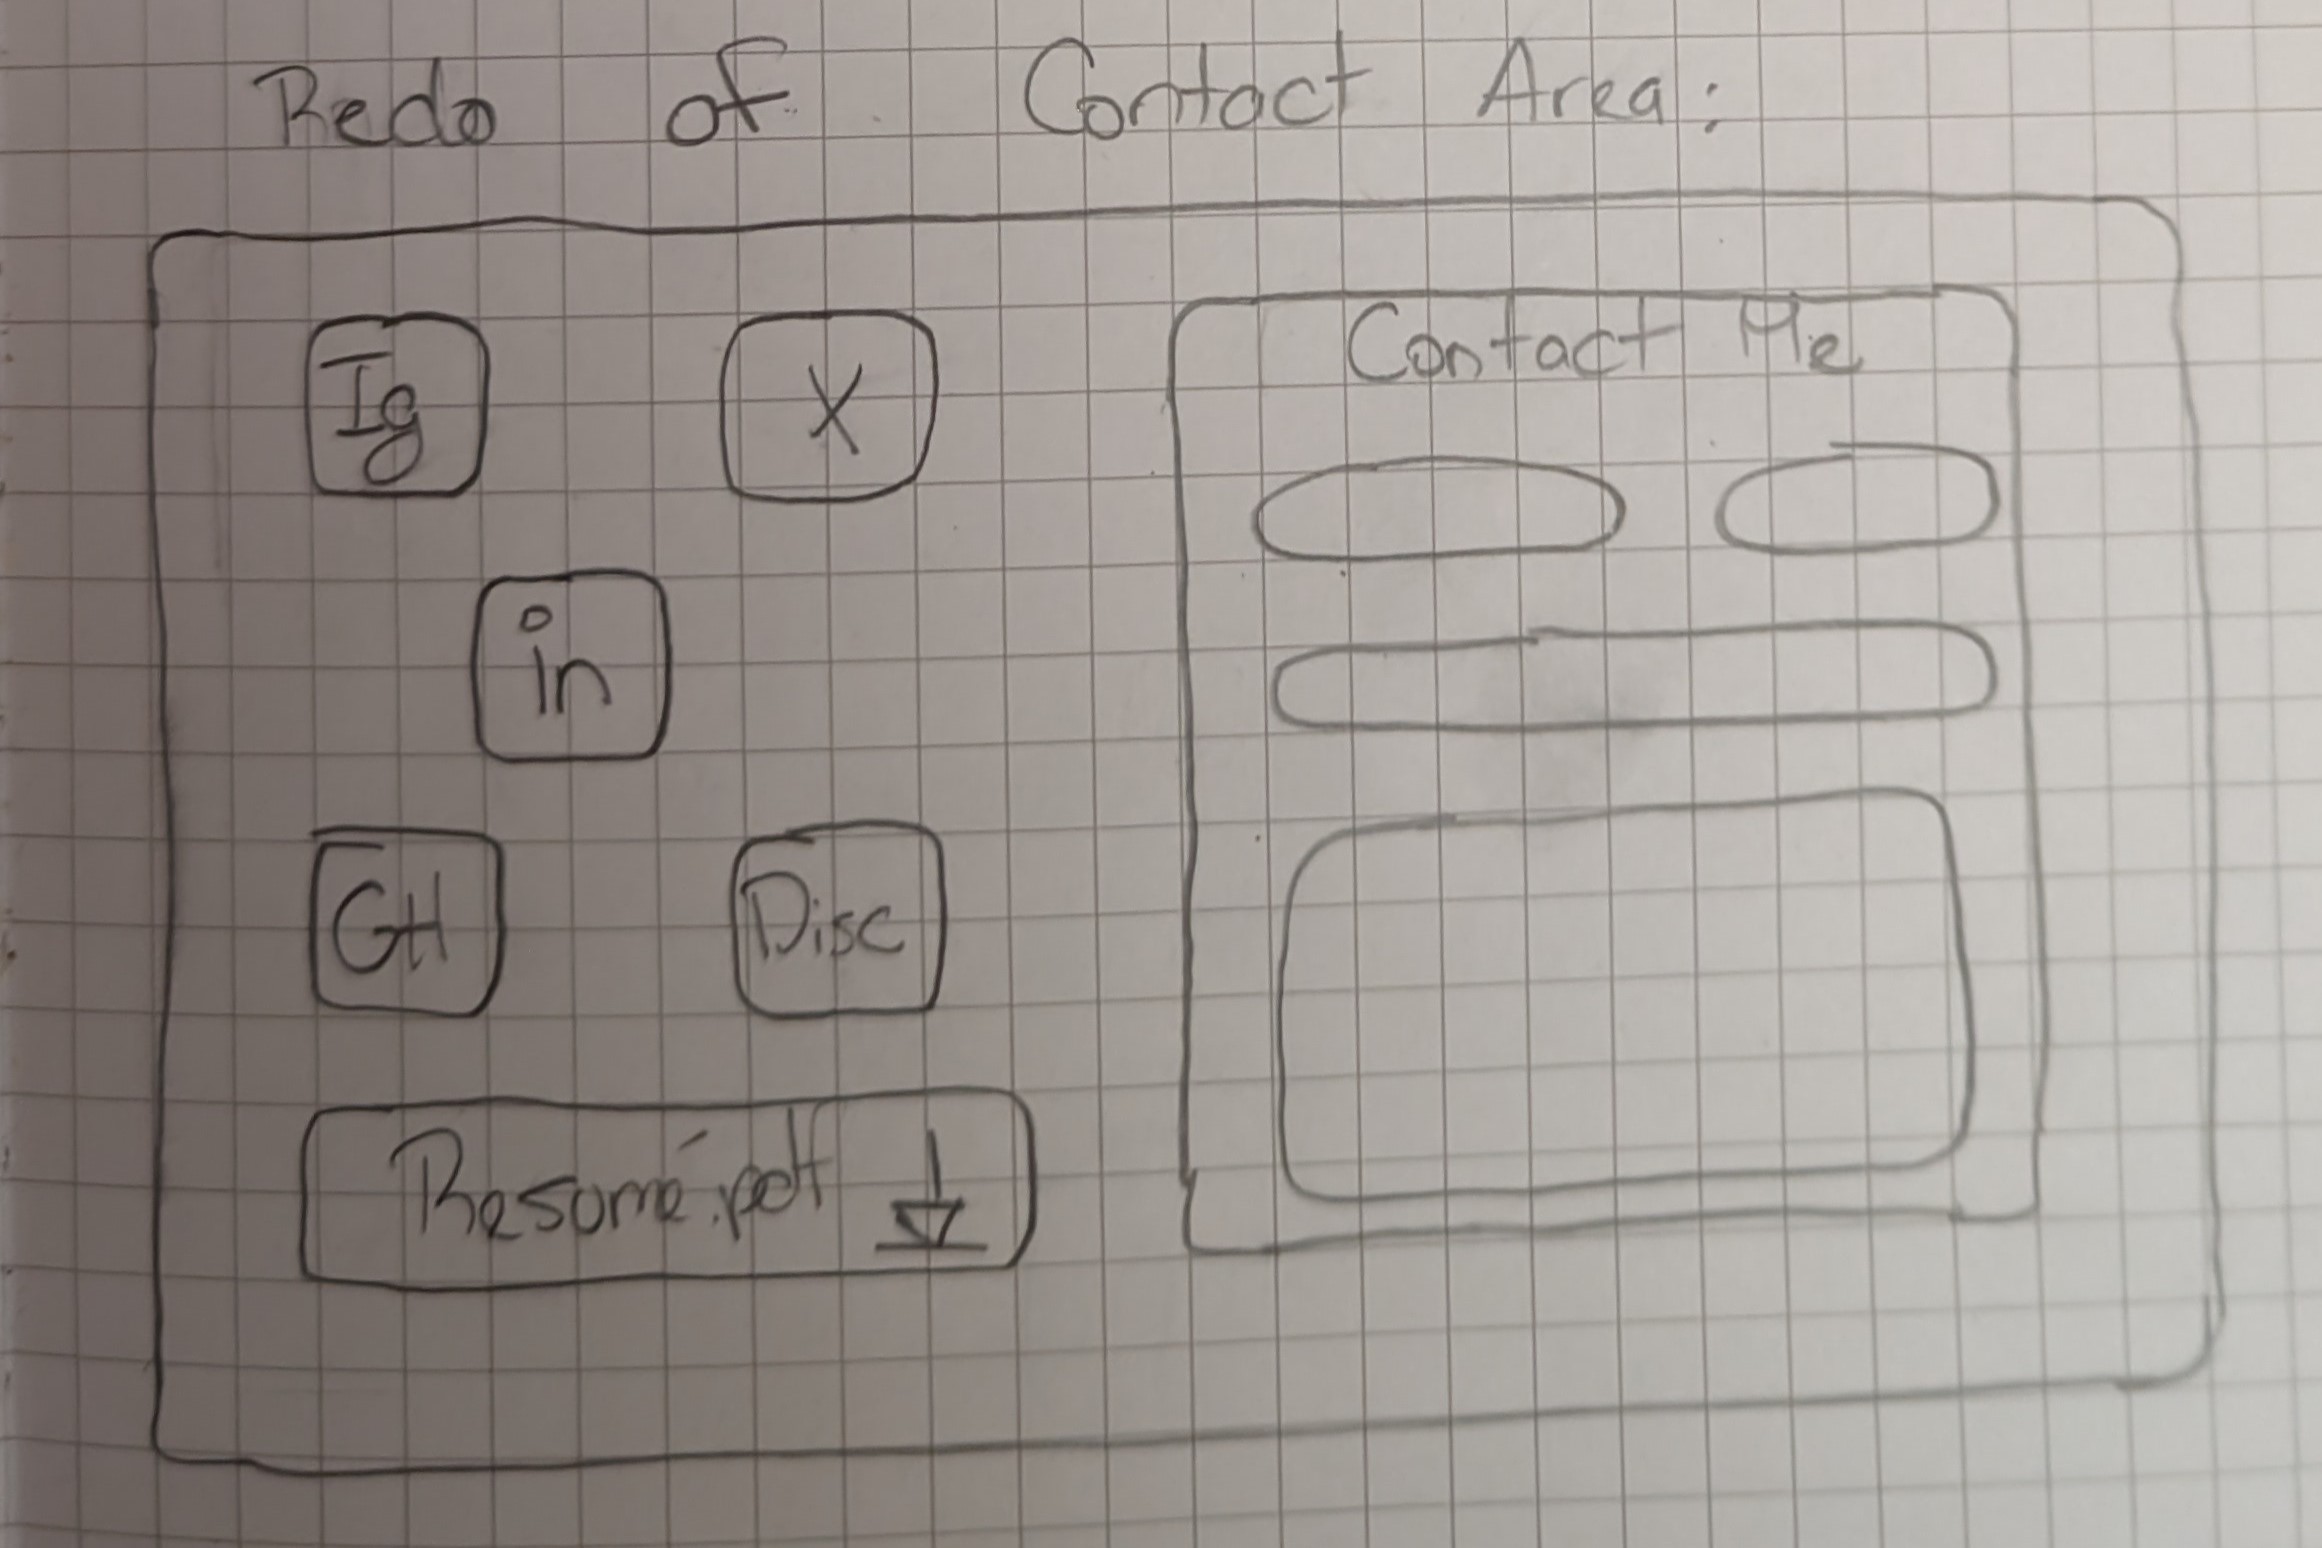 Redo of Contact Area:
Ig
X
in
GH
Disc
Resumé.pdf
Contact Me